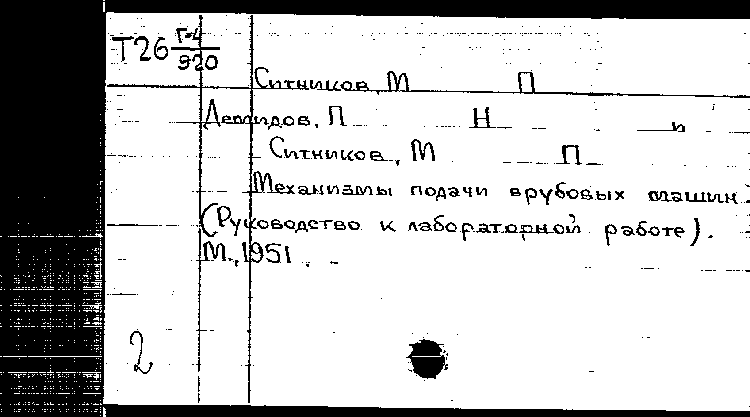 Т26 Г-4/920
Ситников, М П
Демидов, П Н и
Ситников, М П
Механизмы подачи врубовых машин.
(Руководство к лабораторной работе).
М., 1951. -
2